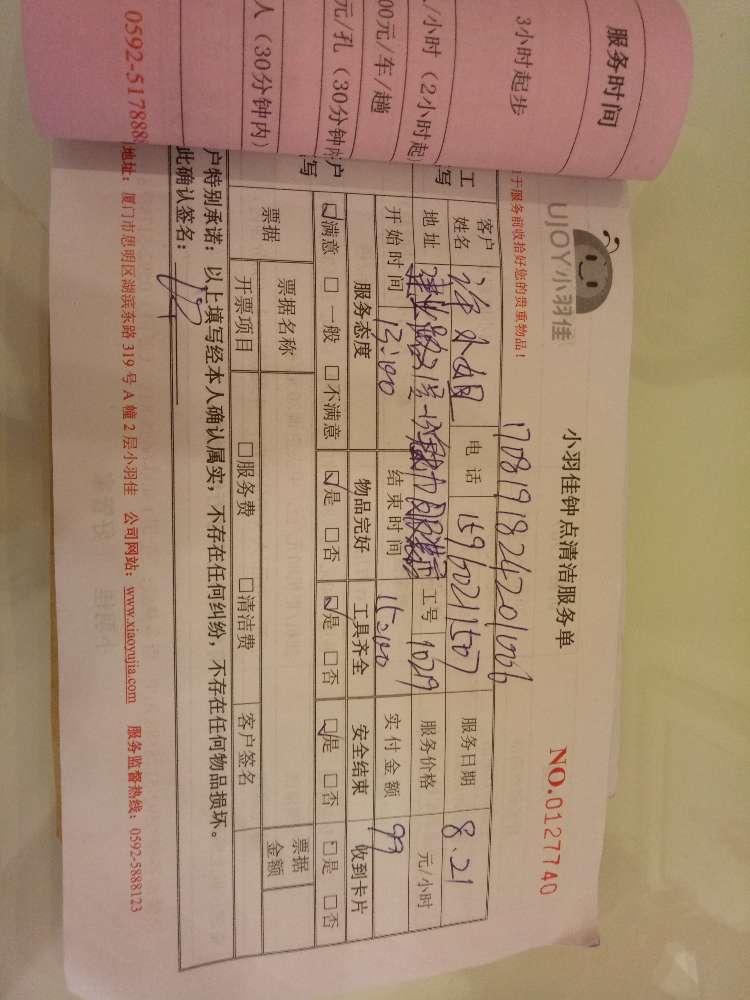 服务时间
3小时起步
/小时（2小时起
00元/车/趟
元/孔（30分钟
人（30分钟内）
0592-517888
UJOY小羽佳
小羽佳钟点清洁服务单
NO.0127740
于服务前收拾好您的贵重物品！
客户姓名
小姐
电话
服务日期
8.21
地址
工号
1029
服务价格
元/小时
开始时间
13:00
结束时间
15:00
实付金额
99
服务态度
物品完好
工具齐全
安全结束
收到卡片
☑满意 □一般 □不满意
☑是 □否
☑是 □否
☑是 □否
□是 □否
票据
票据名称
票据金额
开票项目
□服务费
□清洁费
客户签名
户特别承诺：以上填写经本人确认属实，不存在任何纠纷，不存在任何物品损坏。
此确认签名：
地址：厦门市思明区湖滨东路319号A幢2层小羽佳 公司网站：www.xiaoyujia.com 服务监督热线：0592-5888123